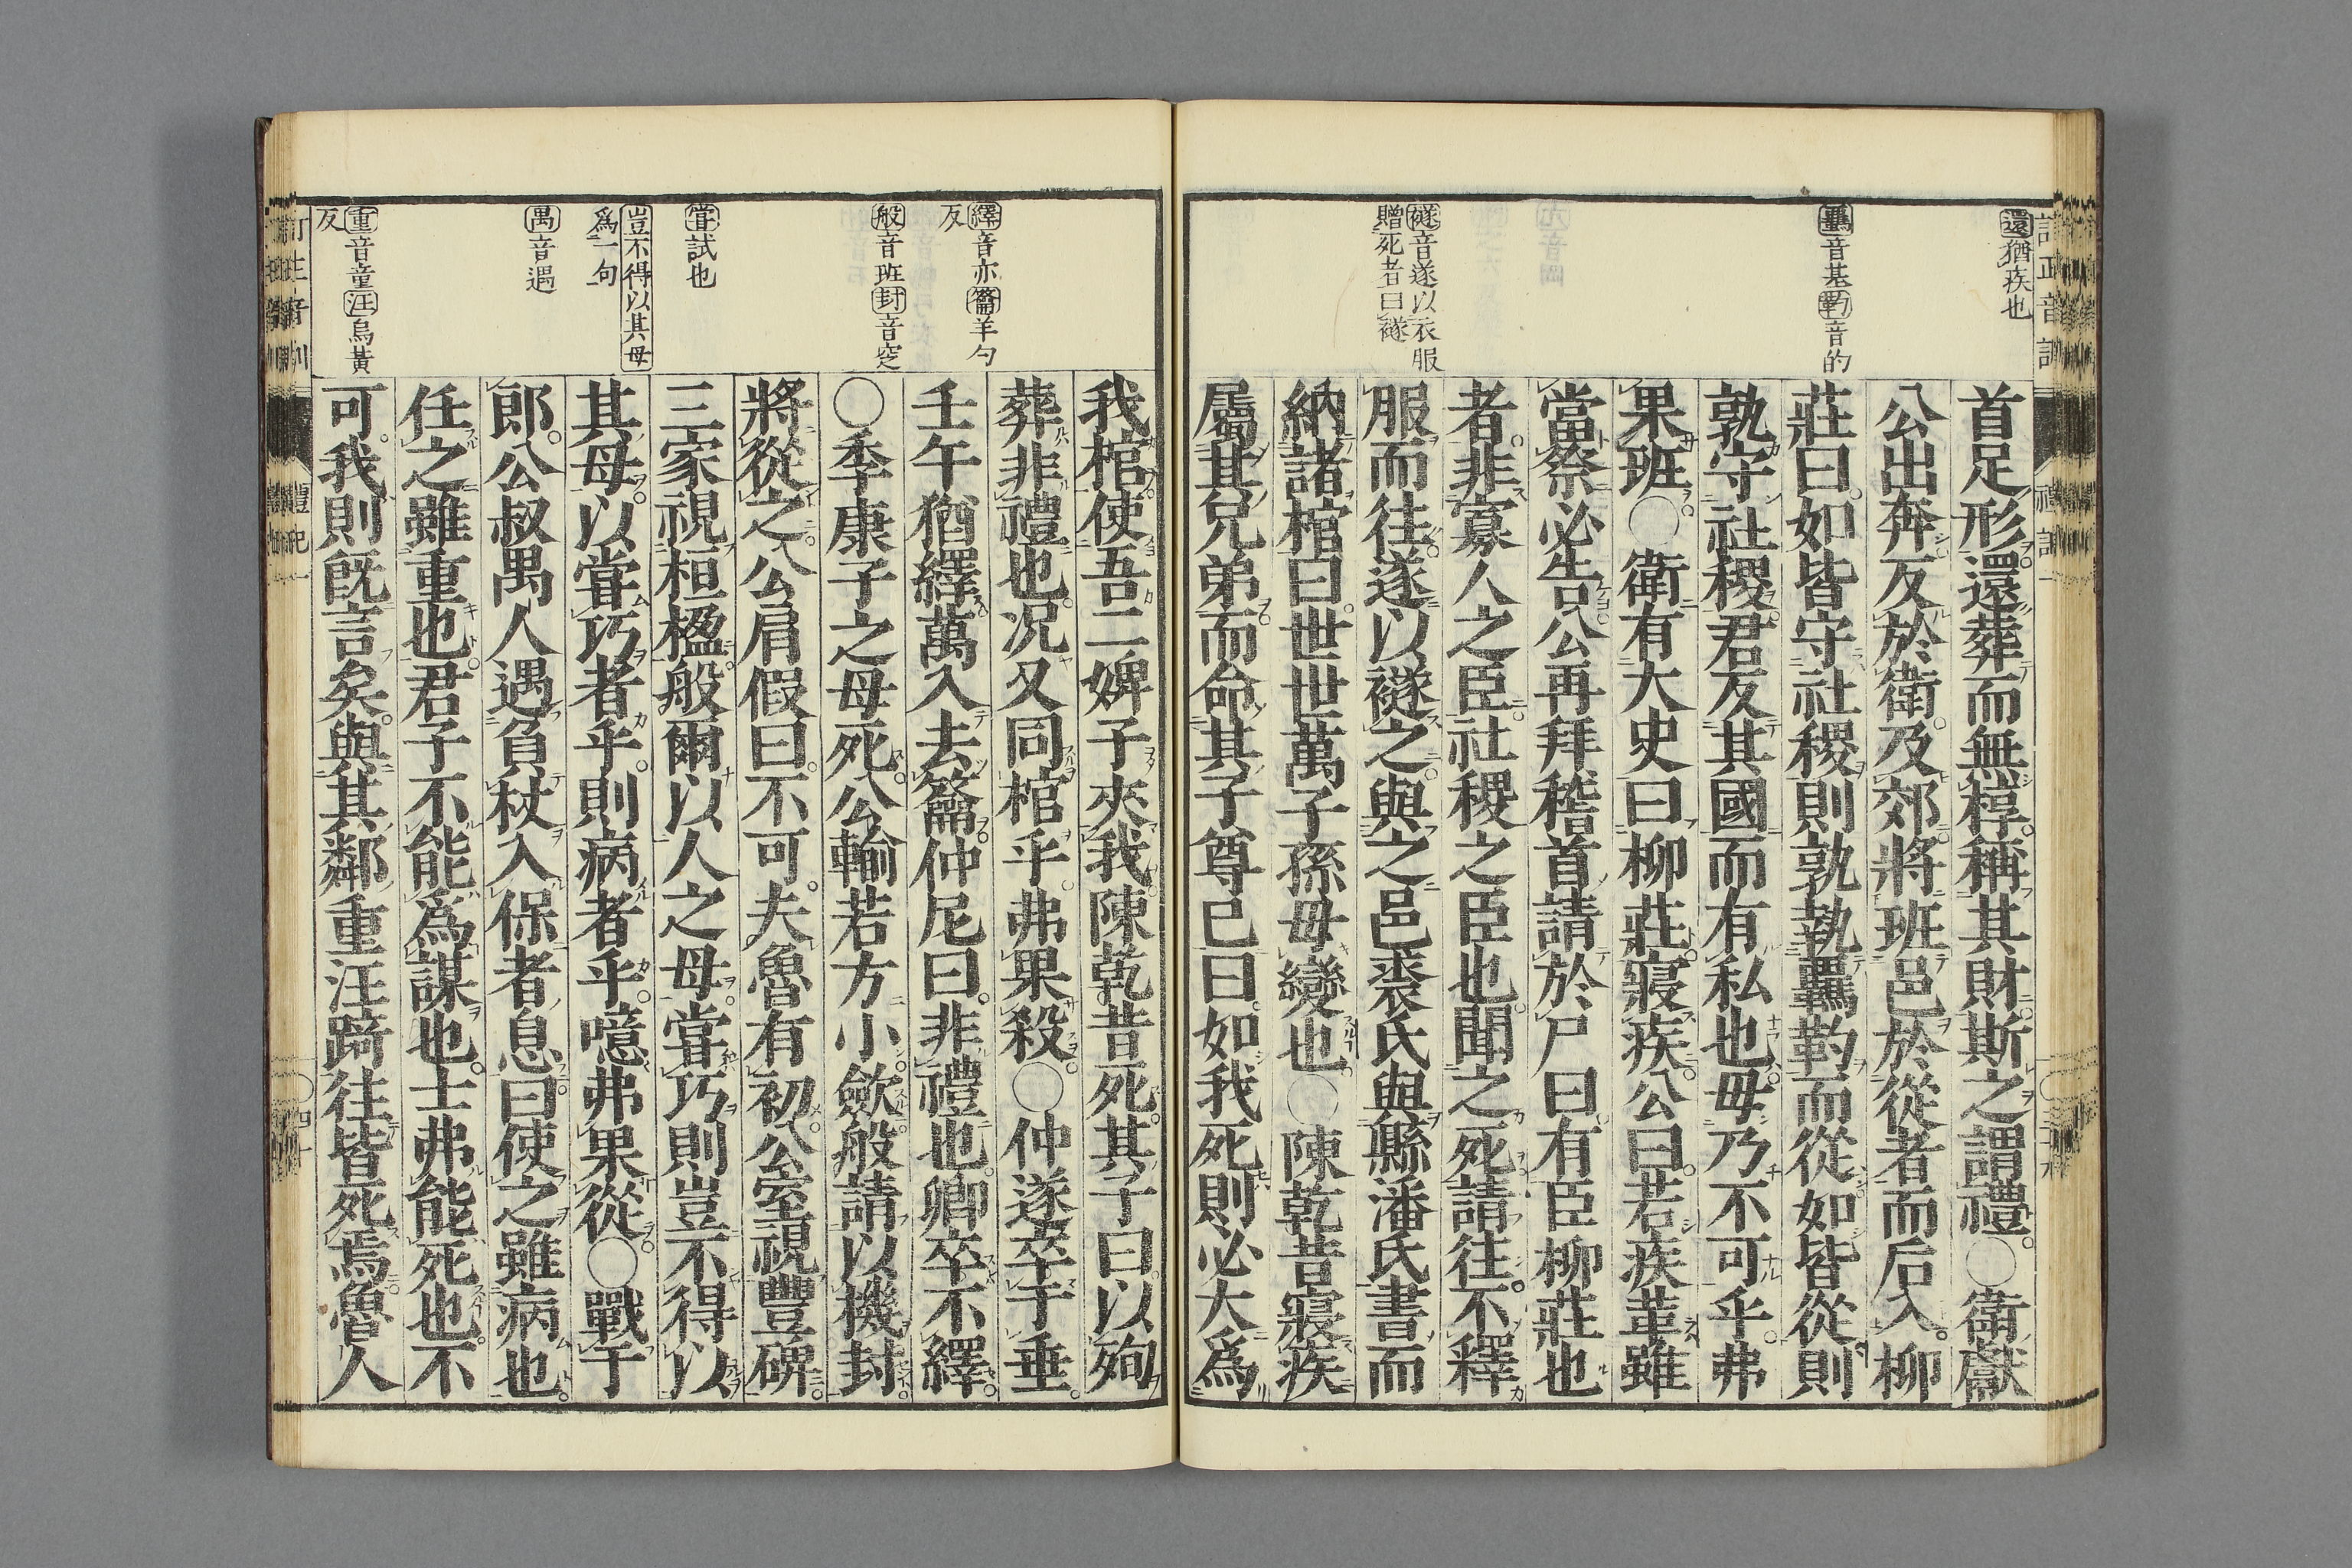 還猶疾也
羈音基靮音的
襚音遂以衣服
贈死者曰襚
首足形還葬而無椁稱其財斯之謂禮○衛獻
公出奔反於衛及郊將班邑於從者而后入柳
莊曰如皆守社稷則孰執羈靮而從如皆從則
孰守社稷君反其國而有私也毋乃不可乎弗
果班○衛有大史曰柳莊寢疾公曰若疾革雖
當祭必告公再拜稽首請於尸曰有臣柳莊也
者非寡人之臣社稷之臣也聞之死請往不釋
服而往遂以襚之與之邑裘氏與縣潘氏書而
納諸棺曰世世萬子孫毋變也○陳乾昔寢疾
屬其兄弟而命其子尊己曰如我死則必大爲
繹音亦籥羊勺
反
般音班封音窆
嘗試也
豈不得以其母
爲一句
禺音遇
重音童汪烏黃
反
我棺使吾二婢子夾我陳乾昔死其子曰以殉
葬非禮也况又同棺乎弗果殺○仲遂卒于垂
壬午猶繹萬入去籥仲尼曰非禮也卿卒不繹
○季康子之母死公輸若方小斂般請以機封
將從之公肩假曰不可夫魯有初公室視豐碑
三家視桓楹般爾以人之母嘗巧則豈不得以
其母以嘗巧者乎則病者乎噫弗果從○戰于
郎公叔禺人遇負杖入保者息曰使之雖病也
任之雖重也君子不能爲謀也士弗能死也不
可我則既言矣與其鄰重汪踦往皆死焉魯人
禮記一
四十